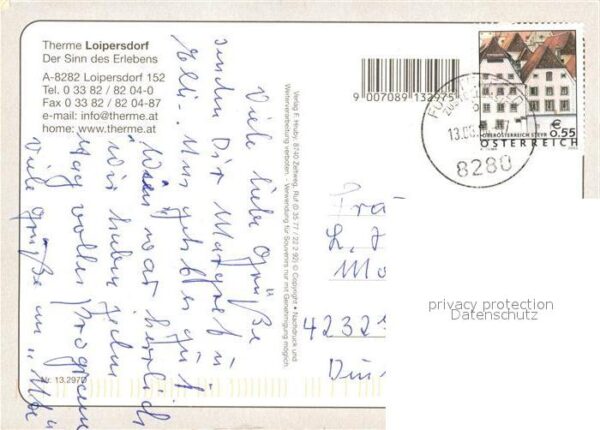 Therme Loipersdorf
Der Sinn des Erlebens
A-8282 Loipersdorf 152
Tel. 0 33 82 / 82 04-0
Fax 0 33 82 / 82 04-87
e-mail: info@therme.at
home: www.therme.at
Viele liebe Grüße
senden Dir Margret u
Elli. Uns geht es gut
Wien war herrlich
wir haben jeden
Tag volles Program
Viele Grüße an
Nr. 13.2975
Verlag F. Hruby, 8740 Zeltweg, Ruf (0 35 77 / 22 2 92) © Copyright • Nachdruck und
Weiterverarbeitung verboten. - Verwendung für Souvenirs nur mit Genehmigung möglich.
9 007089 132975
OBERÖSTERREICH STEYR € 0,55
ÖSTERREICH
13.08
8280
42323
privacy protection
Datenschutz